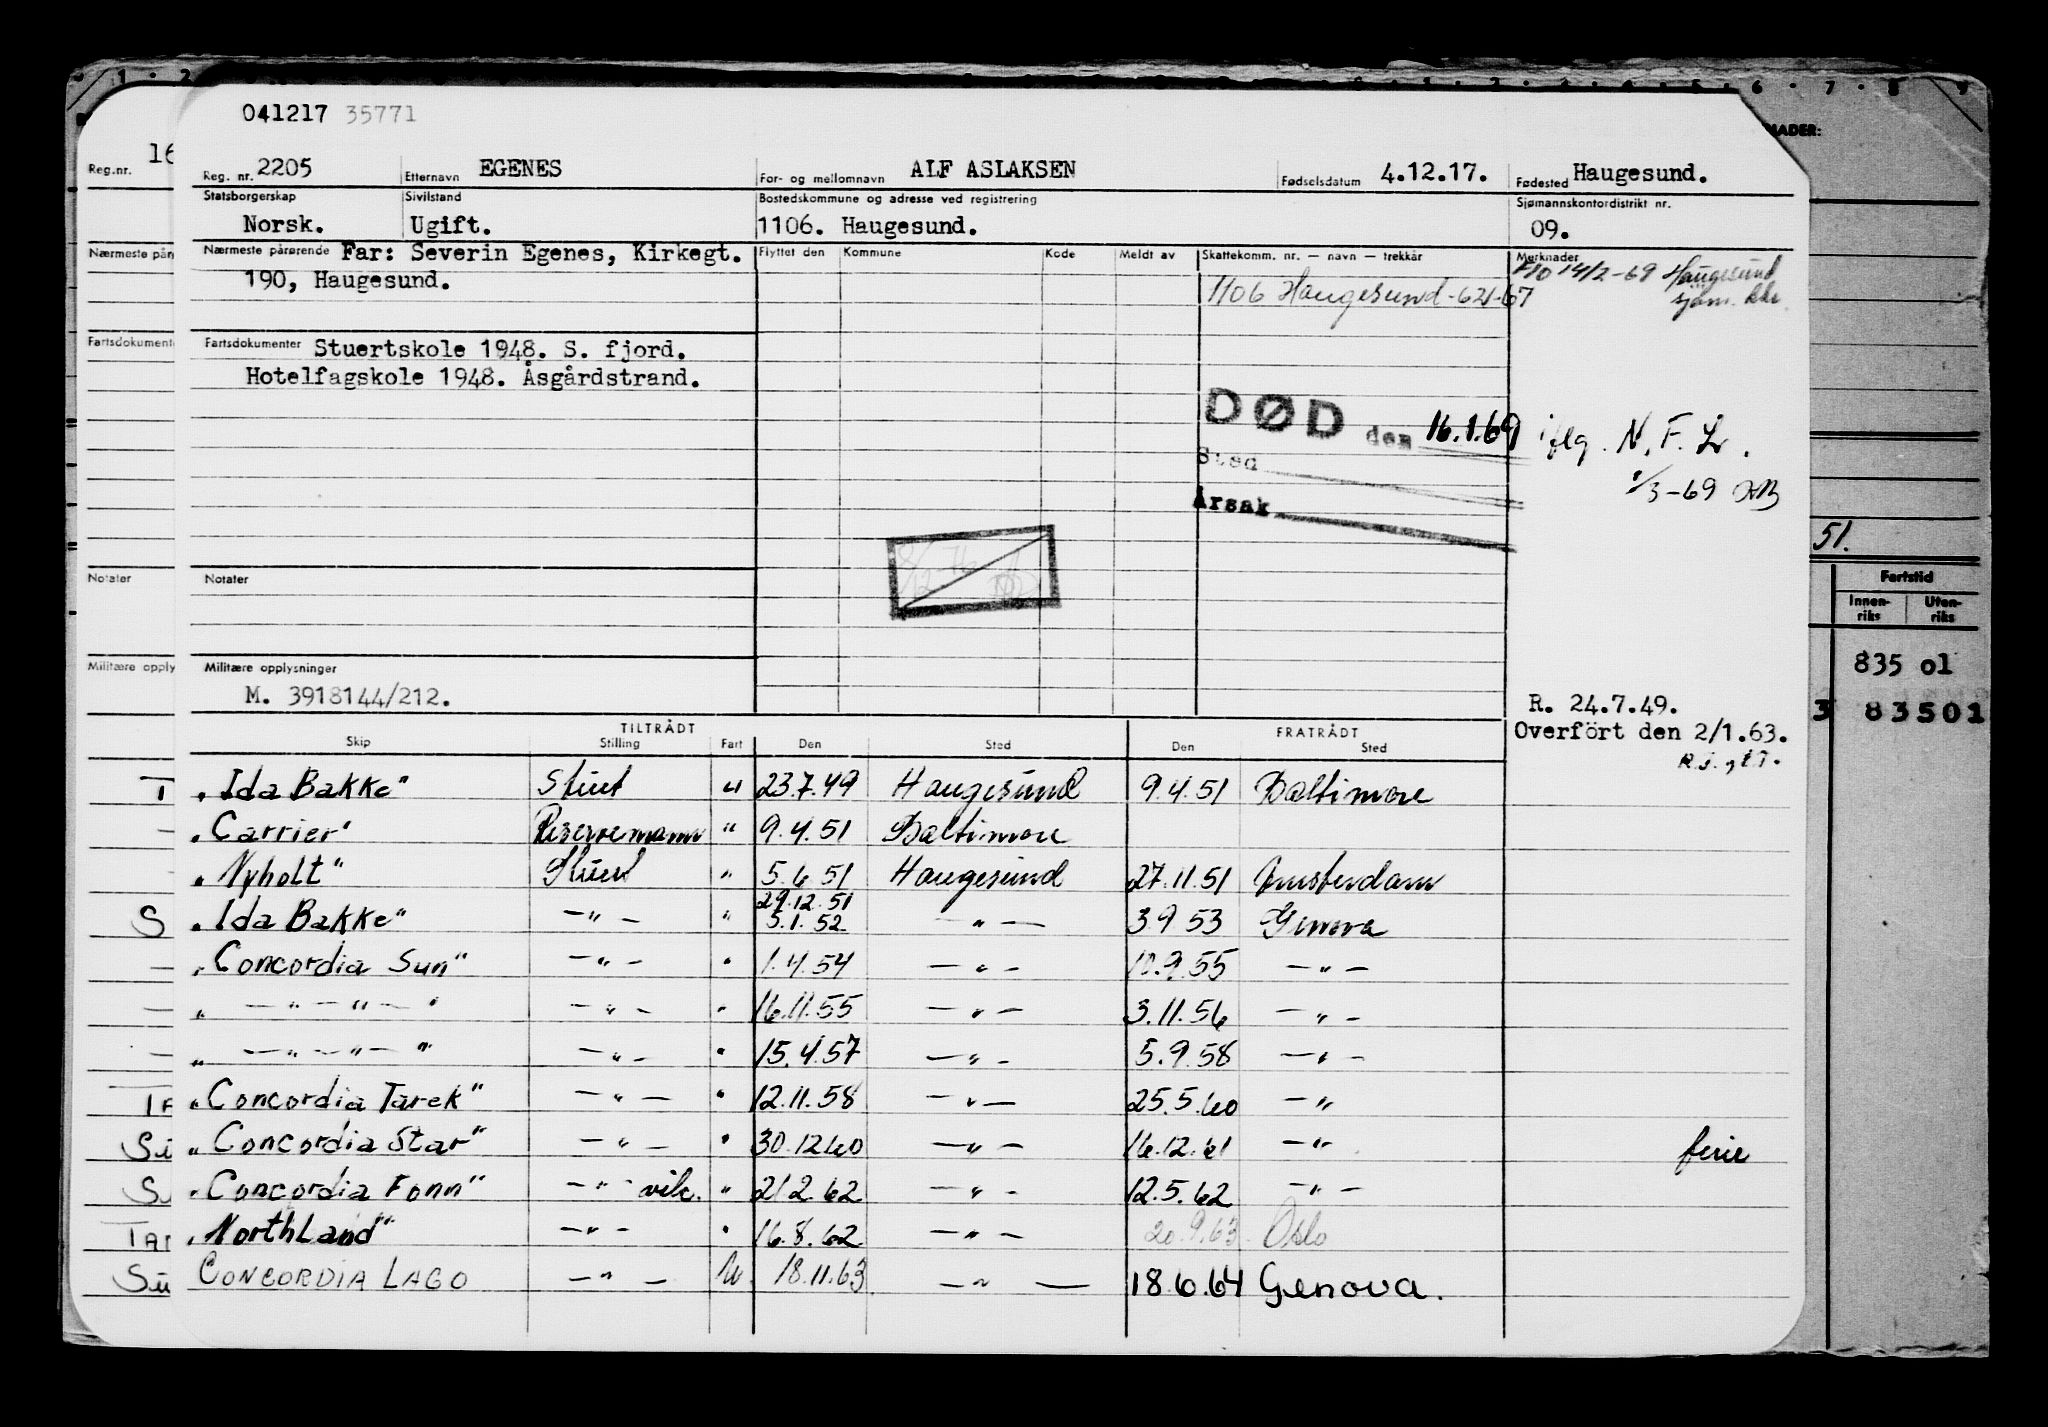 041217 35771
Reg. nr. 2205 Etternavn EGENES For- og mellomnavn ALF ASLAKSEN Fødselsdatum 4.12.17. Fødested Haugesund.
Statsborgerskap Sivilstand Bostedskommune og adresse ved registrering Sjømannskontordistrikt nr.
Norsk. Ugift. 1106. Haugesund. 09.
Nærmeste pårørende Far: Severin Egenes, Kirkegt. Flyttet den Kommune Kode Meldt av Skattekomm. nr. — navn — trekkår Merknader
190, Haugesund. 1106 Haugesund-621-67 14/2-69 Haugesund
sjøm. ktr.
Fartsdokumenter Stuertskole 1948. S. fjord.
Hotelfagskole 1948. Åsgårdstrand.
DØD den 16.1.69 iflg. N.F.
Sted
/3-69
Årsak
Notater
Militære opplysninger
M. 3918144/212.
R. 24.7.49.
Overført den 2/1.63.
TILTRÅDT FRATRÅDT
Skip Stilling Fart Den Sted Den Sted
„Ida Bakke" Stuert u 23.7.49 Haugesund 9.4.51 Baltimore
„Carrier" Reservemann " 9.4.51 Baltimore
„Nyholt" Stuert " 5.6.51 Haugesund 27.11.51 Amsterdam
29.12.51
„Ida Bakke" —"— " 5.1.52 —"— 3.9.53 Genova
„Concordia Sun" —"— " 1.4.54 —"— 10.9.55 —"—
„ —"—"— " —"— " 16.11.55 —"— 3.11.56 —"—
„ —"—"— " —"— " 15.4.57 —"— 5.9.58 —"—
„Concordia Tarek" —"— " 12.11.58 —"— 25.5.60 —"
„Concordia Star" —"— " 30.12.60 —"— 16.12.61 —"— ferie
„Concordia Fonn" —"— vik. " 21.2.62 —"— 12.5.62 —"—
„Northland" —"— " 16.8.62 —"— 20.9.63 Oslo
CONCORDIA LAGO —"— U 18.11.63 —"— 18.6.64 Genova.
Reg.nr. 16
Nærmeste pår
Fartsdokument
Notater
Militære opply
51.
Fartstid
Innen-riks Uten-riks
835 01
3 83501